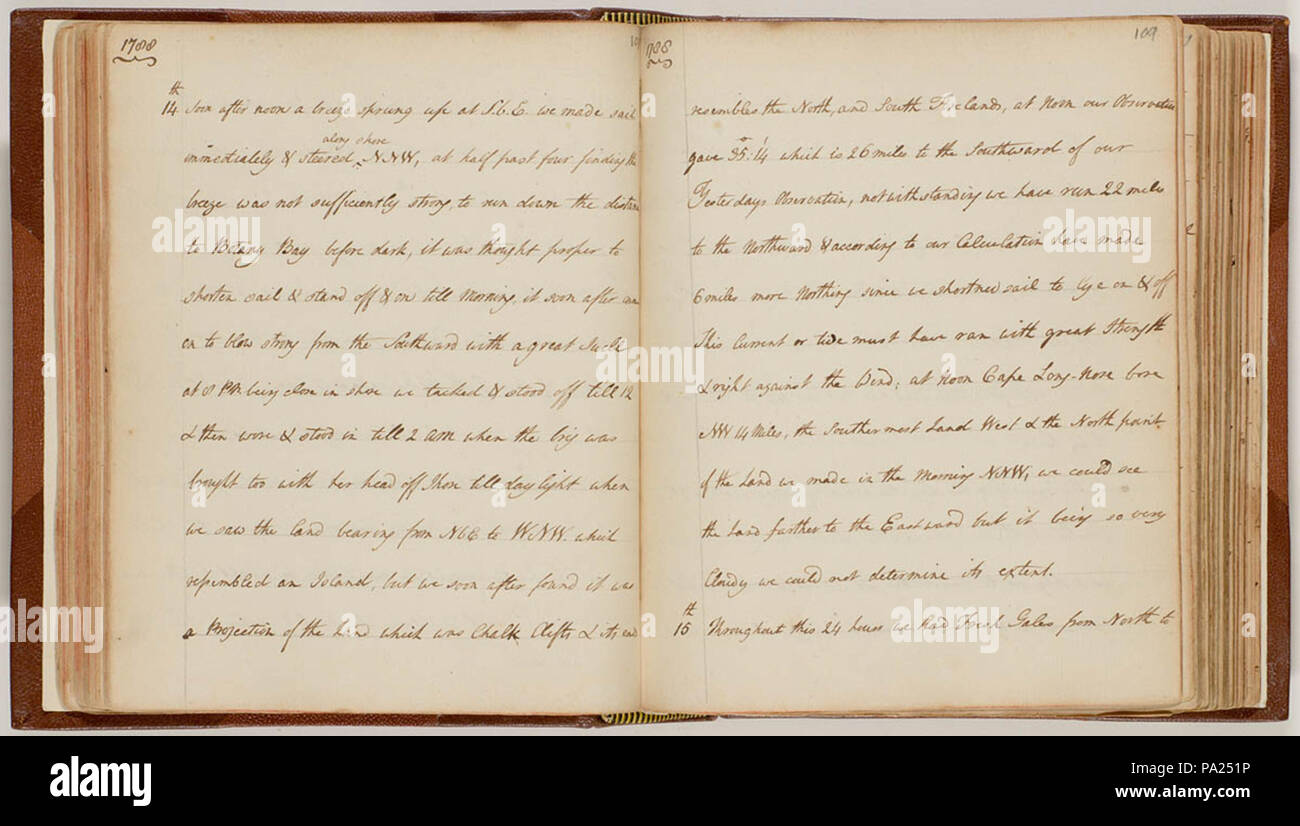 1788
14th Soon after noon a breeze sprung up at S.b.E. we made sail
along shore
immediately & steered ^ NNW, at half past four finding the
breeze was not sufficiently strong, to run down the distance
to Botany Bay before dark, it was thought proper to
shorten sail & stand off & on till Morning, it soon after
on to blow strong from the Southward with a great Swell
at 8 PM being close in shore we tacked & stood off till 12
& then wore & stood in till 2 am when the brig was
brought too with her head off Shore till day light when
we saw the land bearing from NbE to WNW. which
resembled an Island, but we soon after found it was
a Projection of the Land which was Chalk Clifts & its end
1788
109
resembles the North, and South Forelands, at Noon our Observation
gave 35°:14' which is 26 miles to the Southward of our
Yesterdays Observation, notwithstanding we have run 22 miles
to the Northward & according to our Calculation have made
6 miles more Northing since we shortned sail to lye on & off
this Current or tide must have ran with great Strength
& right against the Wind; at noon Cape Long-Nose bore
NW 14 Miles, the Southermost Land West & the North point
of the Land we made in the Morning NNW, we could see
the Land further to the Eastward but it being so very
Cloudy we could not determine its extent.
15th Throughout this 24 hours we had Fresh Gales from North to
alamy
alamy
Image ID: PA251P
www.alamy.com